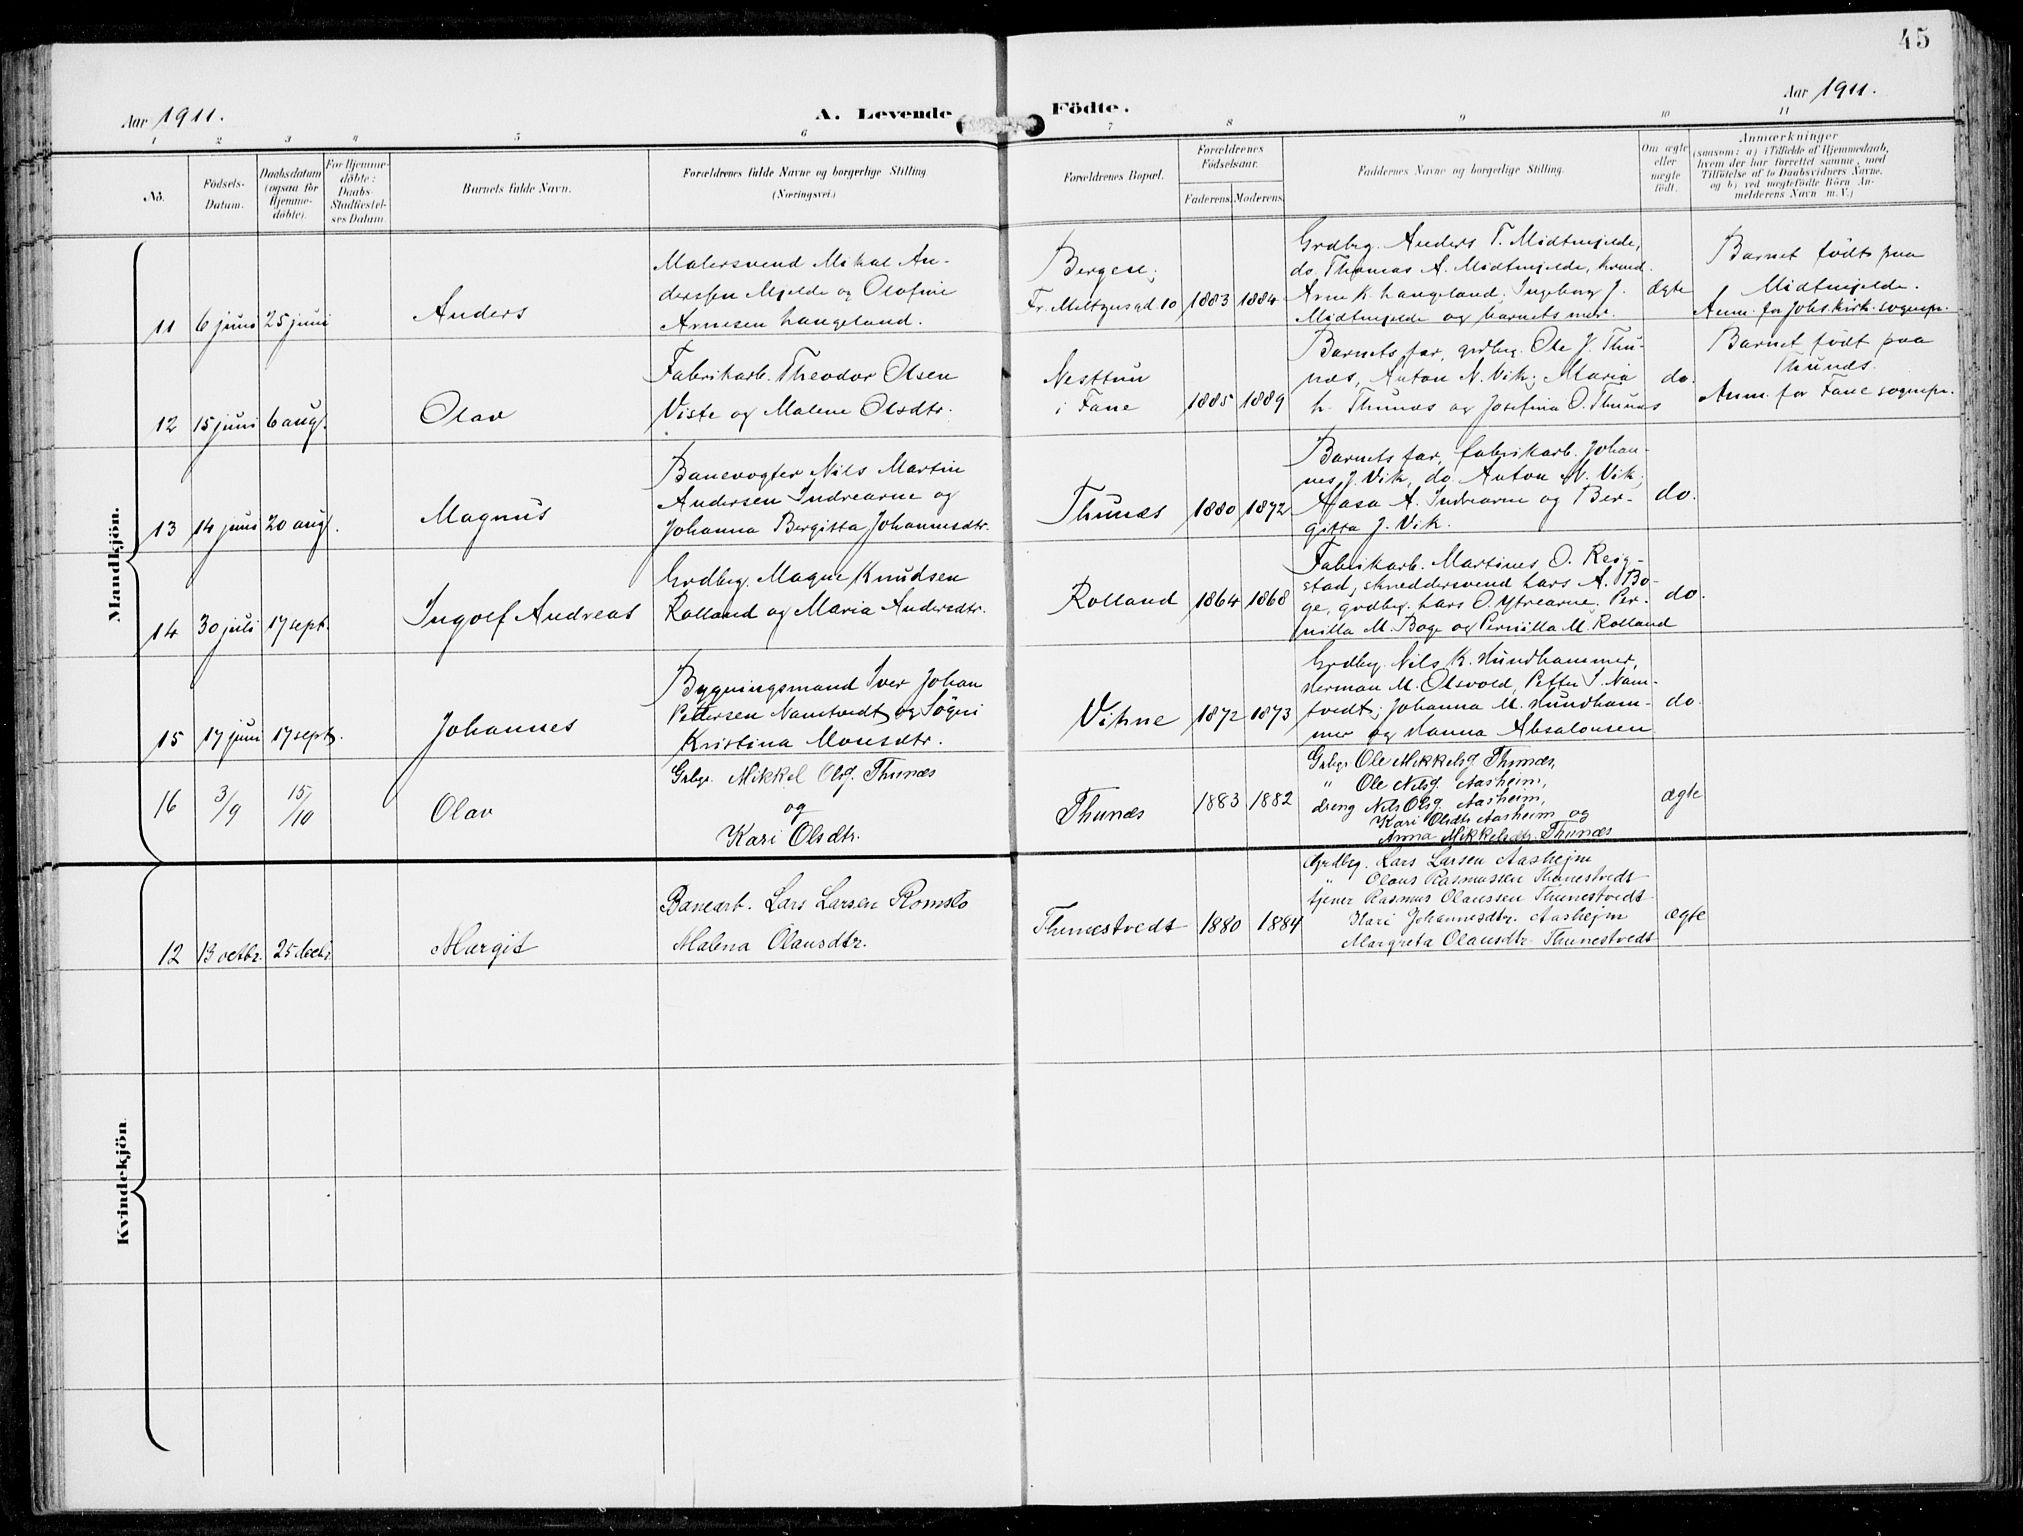 45
Aar 1911.
A. Levende Födte.
Aar 1911.
1 2 3 4 5 6 7 8 9 10 11
No.
Födsels-
Datum.
Daabsdatum
(ogsaa for
Hjemme-
døbte).
For Hjemme-
döbte:
Daabs-
Stadfæstel-
ses Datum.
Barnets fulde Navn.
Forældrenes fulde Navne og borgerlige Stilling
(Næringsvei.)
Forældrenes Bopæl.
Forældrenes
Födselsaar.
Faderens. Moderens.
Faddernes Navne og borgerlige Stilling.
Om ægte
eller
uægte
født.
Anmærkninger
(saasom: a) i Tilfælde af Hjemmedaab,
hvem der har forrettet samme, med
Tilföielse af to Daabsvidners Navne.
og b) ved uægtefödte Börn An-
melderens Navn m. V.)
Mandkjön.
11 6 juni 25 juni
Anders
Malersvend Mikal An-
derssen Mjelde og Olofine
Arnesen Langeland.
Bergen;
Fr. Meltzersgd 10
1883 1884
Grdbrg. Anders T. Midtmjelde,
do Thomas A. Midtmjelde,
Arne K. Langeland; Ingeborg J.
Midtmjelde og barnets mor.
ægte
Barnet födt paa
Midtmjelde.
Anm. for Johs.kirk. sognepr.
12 15 juni 6 aug.
Olav
Fabrikarb. Theodor Olsen
Viste og Malene Olsdtr.
Nesttun
i Fane
1885 1889
Barnets far, grdbrg. Ole J. Thu-
næs, Anton N. Vik; Maria
L. Thunæs og Josefina O. Thunæs
do.
Barnet födt paa
Thunæs.
Anm. for Fane sognepr.
13 14 juni 20 aug.
Magnus
Banevogter Nils Martin
Andersen Indrearne og
Johanna Bergitta Johannesdtr.
Thunæs
1880 1872
Barnets far, fabrikarb. Johan-
nes J. Vik, do. Anton N. Vik;
Aasa A. Indrearne og Ber-
gitta J. Vik.
do.
14 30 juli 17 sept.
Ingolf Andreas
Grdbrg. Magne Knudsen
Rolland og Maria Andersdtr.
Rolland
1864 1868
Fabrikarb. Martines O. Reig-
stad, skreddersvend Lars A. Bo-
ge, grdbrg. Lars O. Ytrearne. Per-
nilla M. Boge og Pernilla M. Rolland
do.
15 17 juni 17 sept.
Johannes
Bygningsmand Iver Johan
Pettersen Namtvedt og Sögni
Kristina Monsdtr.
Vikne
1872 1873
Grdbrg. Nils K. Hundhammer,
Herman M. Olsvold, Petter I. Nam-
tvedt; Johanna M. Hundham-
mer og Hanna Absalonsen
do.
16 3/9 15/10
Olav
Grbgr. Mikkel Olsg. Thunæs
og
Kari Olsdtr.
Thunæs
1883 1882
Grbgr Ole Mikkelsg. Thunæs,
" Ole Nilsg. Aasheim,
dreng Nils Olsg. Aasheim,
Kari Olsdtr Aasheim og
Anna Mikkelsdtr. Thunæs
ægte
Kvindekjön.
12 13 octbr. 25 decbr
Margit
Banearb. Lars Larsen Romslo
Malena Olausdtr.
Thunestvedt
1880 1884
Grdbrg. Lars Larsen Aashejm
" Olaus Rasmussen Thunestvedt
tjener Rasmus Olaussen Thunestvedt
Kari Johannesdtr. Aashejm
Margreta Olausdtr. Thunestvedt
ægte